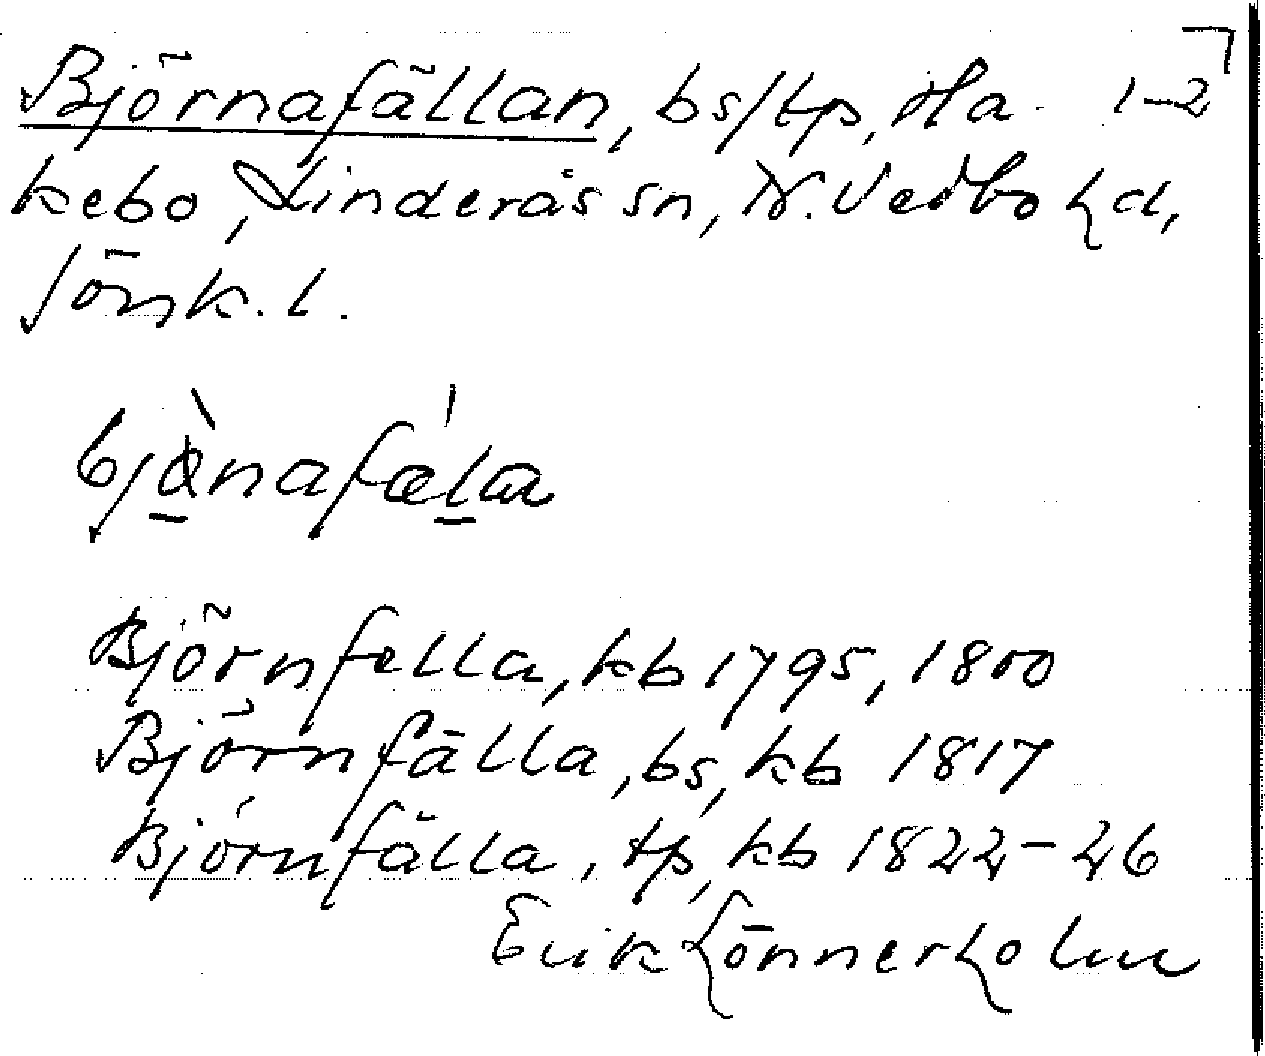 Björnafällan, bs/tp, Ha- 1-2
kebo, Linderås sn, N. Vedbo hd,
Jönk. l.
Björnfella, kb 1795, 1800
Björnfälla, bs, kb 1817
Björnfälla, tp, kb 1822-26
Erik Lönnerholm